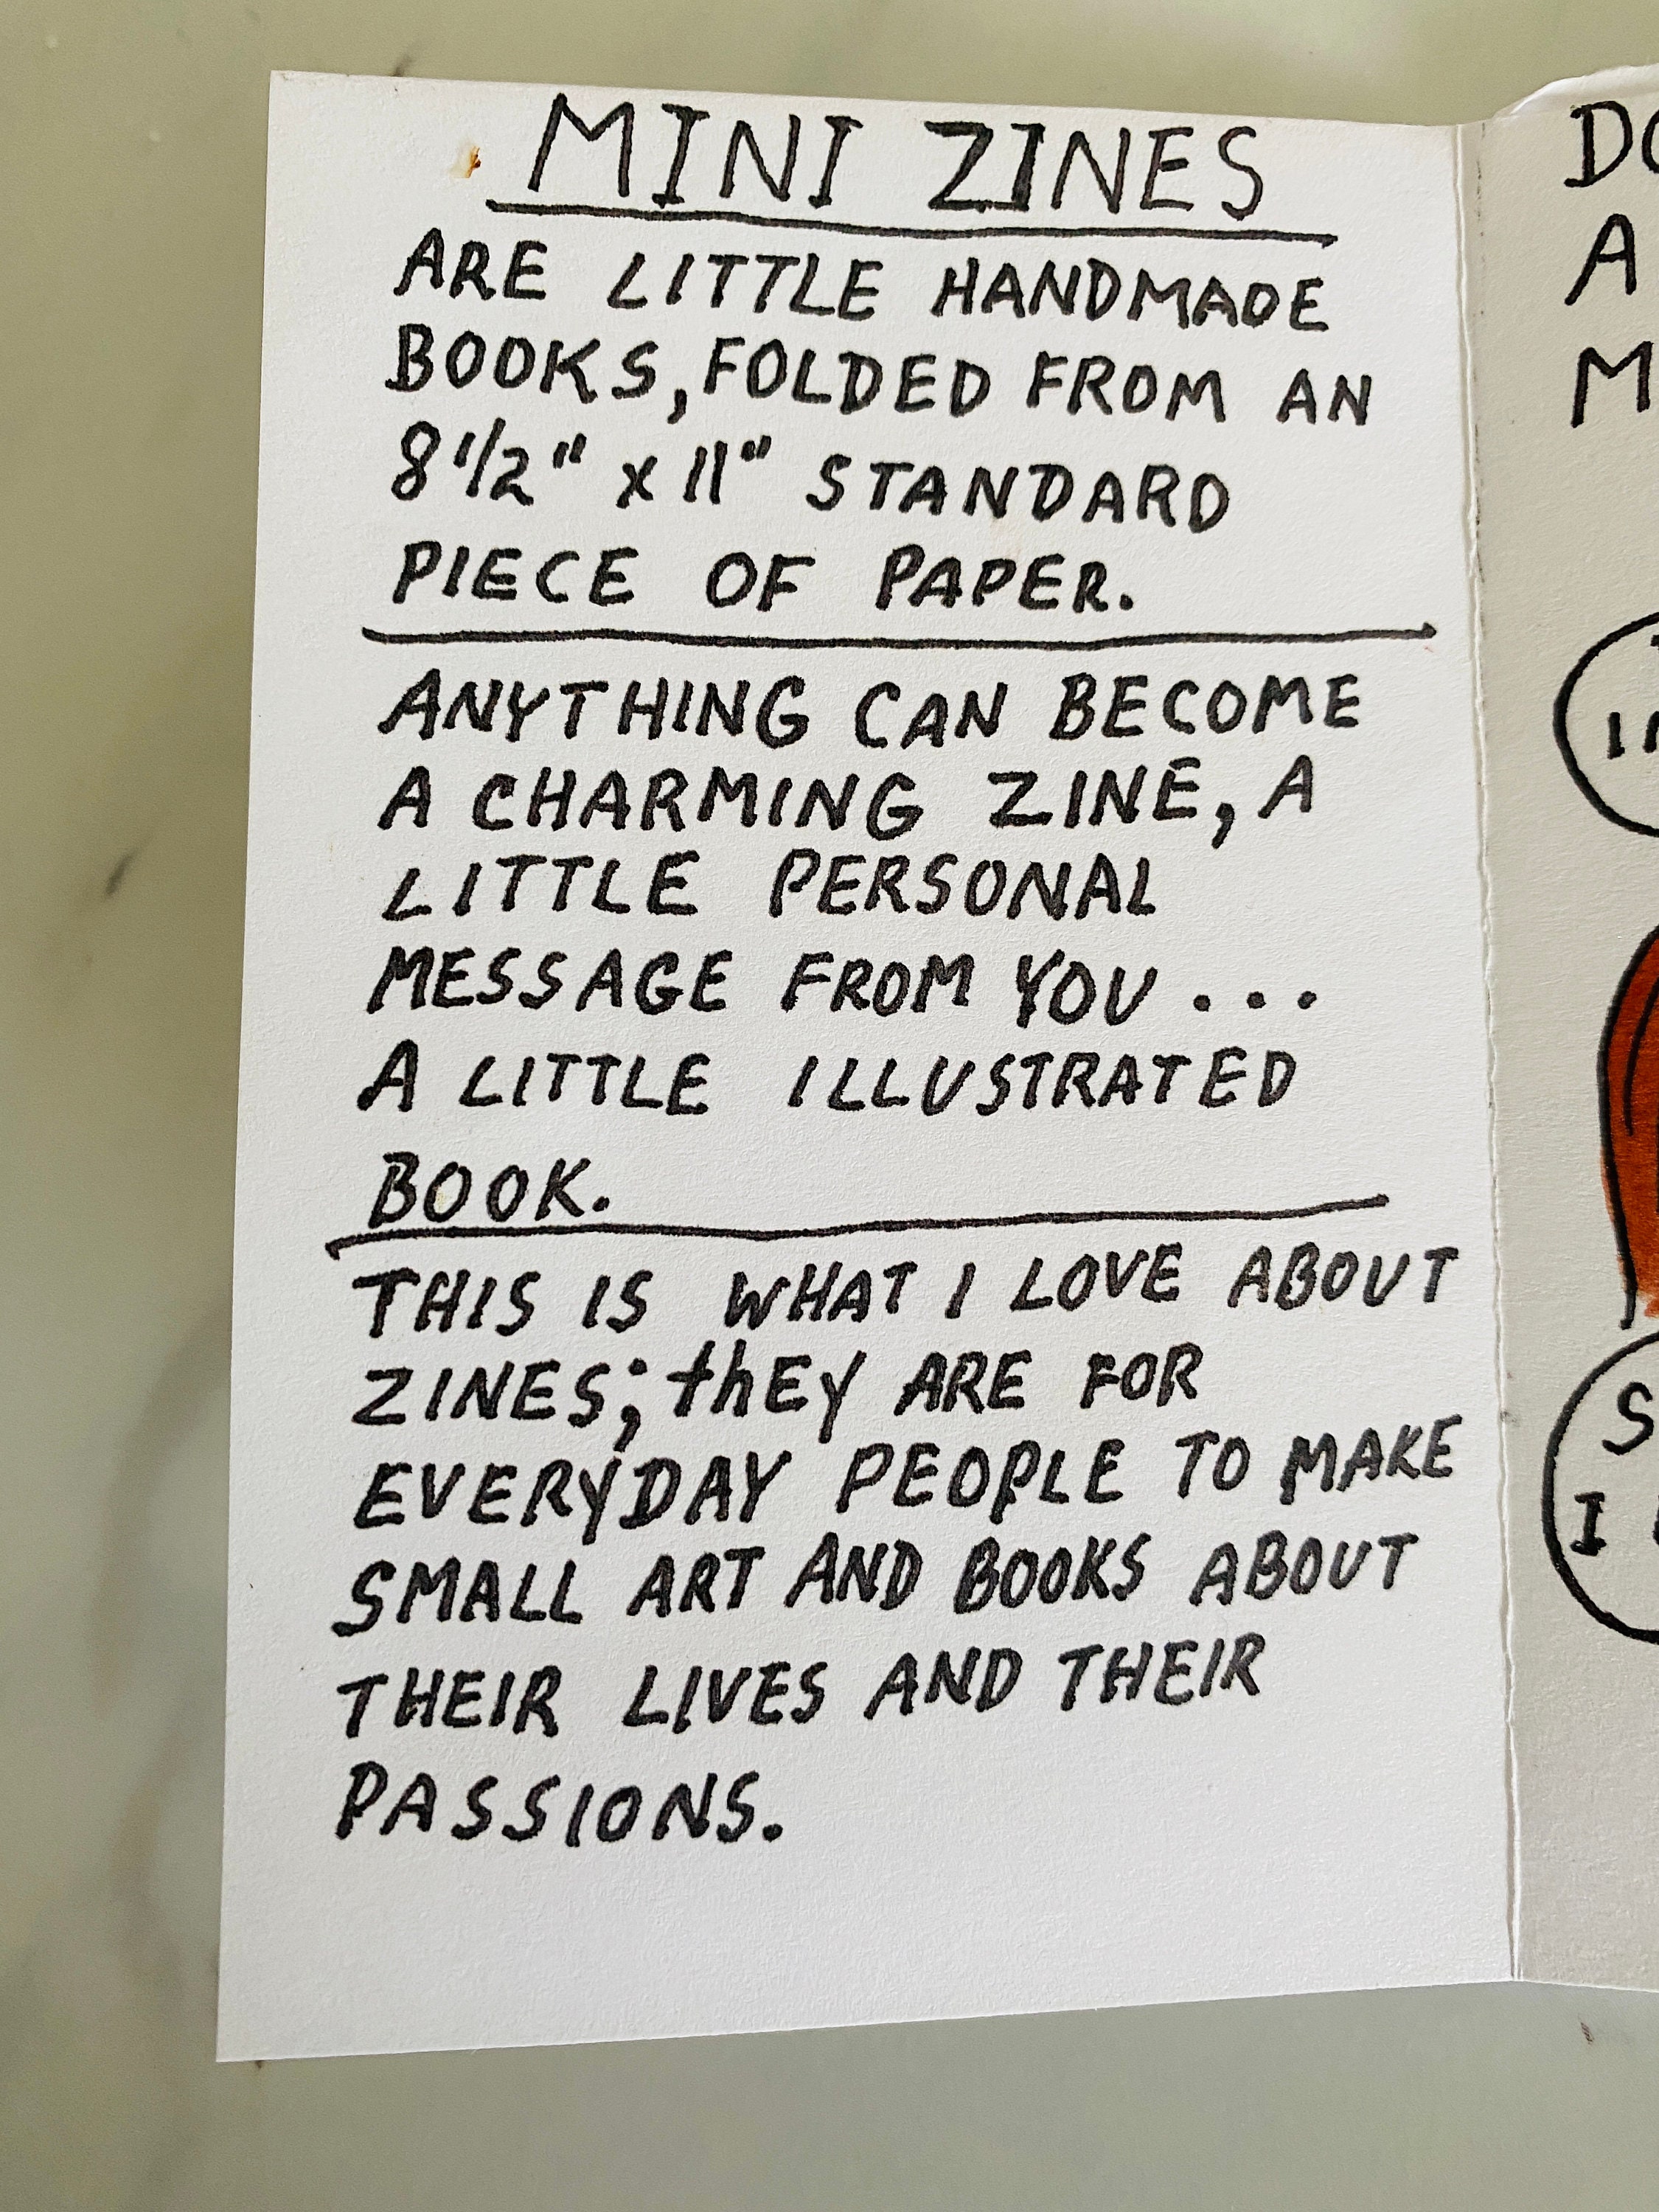 MINI ZINES
ARE LITTLE HANDMADE
BOOKS, FOLDED FROM AN
8 1/2" x 11" STANDARD
PIECE OF PAPER.
ANYTHING CAN BECOME
A CHARMING ZINE, A
LITTLE PERSONAL
MESSAGE FROM YOU...
A LITTLE ILLUSTRATED
BOOK.
THIS IS WHAT I LOVE ABOUT
ZINES; thEy ARE FOR
EVERYDAY PEOPLE TO MAKE
SMALL ART AND BOOKS ABOUT
THEIR LIVES AND THEIR
PASSIONS.
A
I